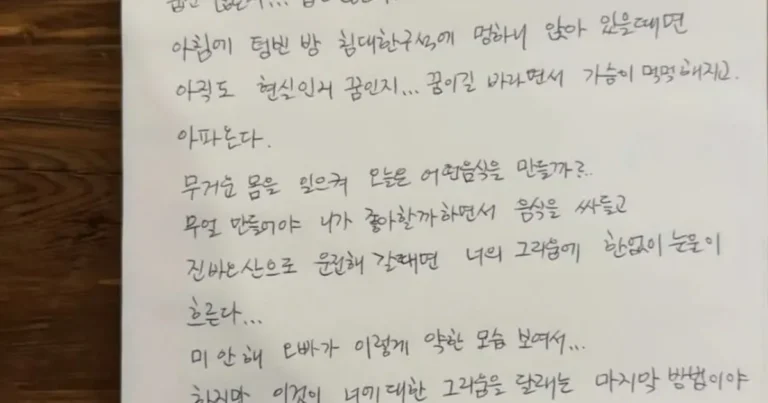 아침에 텅빈 방 침대한구석에 멍하니 앉아 있을때면
아직도 현실인지 꿈인지... 꿈이길 바라면서 가슴이 먹먹해지고.
아파온다.
무거운 몸을 일으켜 오늘은 어떤음식을 만들까?..
무얼 만들어야 니가 좋아할까하면서 음식을 싸들고
진바오산으로 운전해 갈때면 너의 그리움에 한없이 눈물이
흐른다...
미안해 오빠가 이렇게 약한 모습 보여서...
하지만 이것이 너에대한 그리움을 달래는 마지막 방법이야